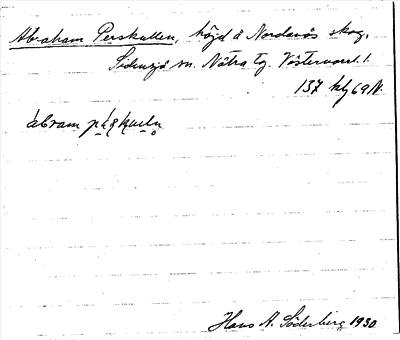 Abraham Perskullen, höjd å Nordanås skog,
Sidensjö sn. Nätra tg. Västernorrl. l.
137 kbg 69 N.
Hans A. Söderberg 1930